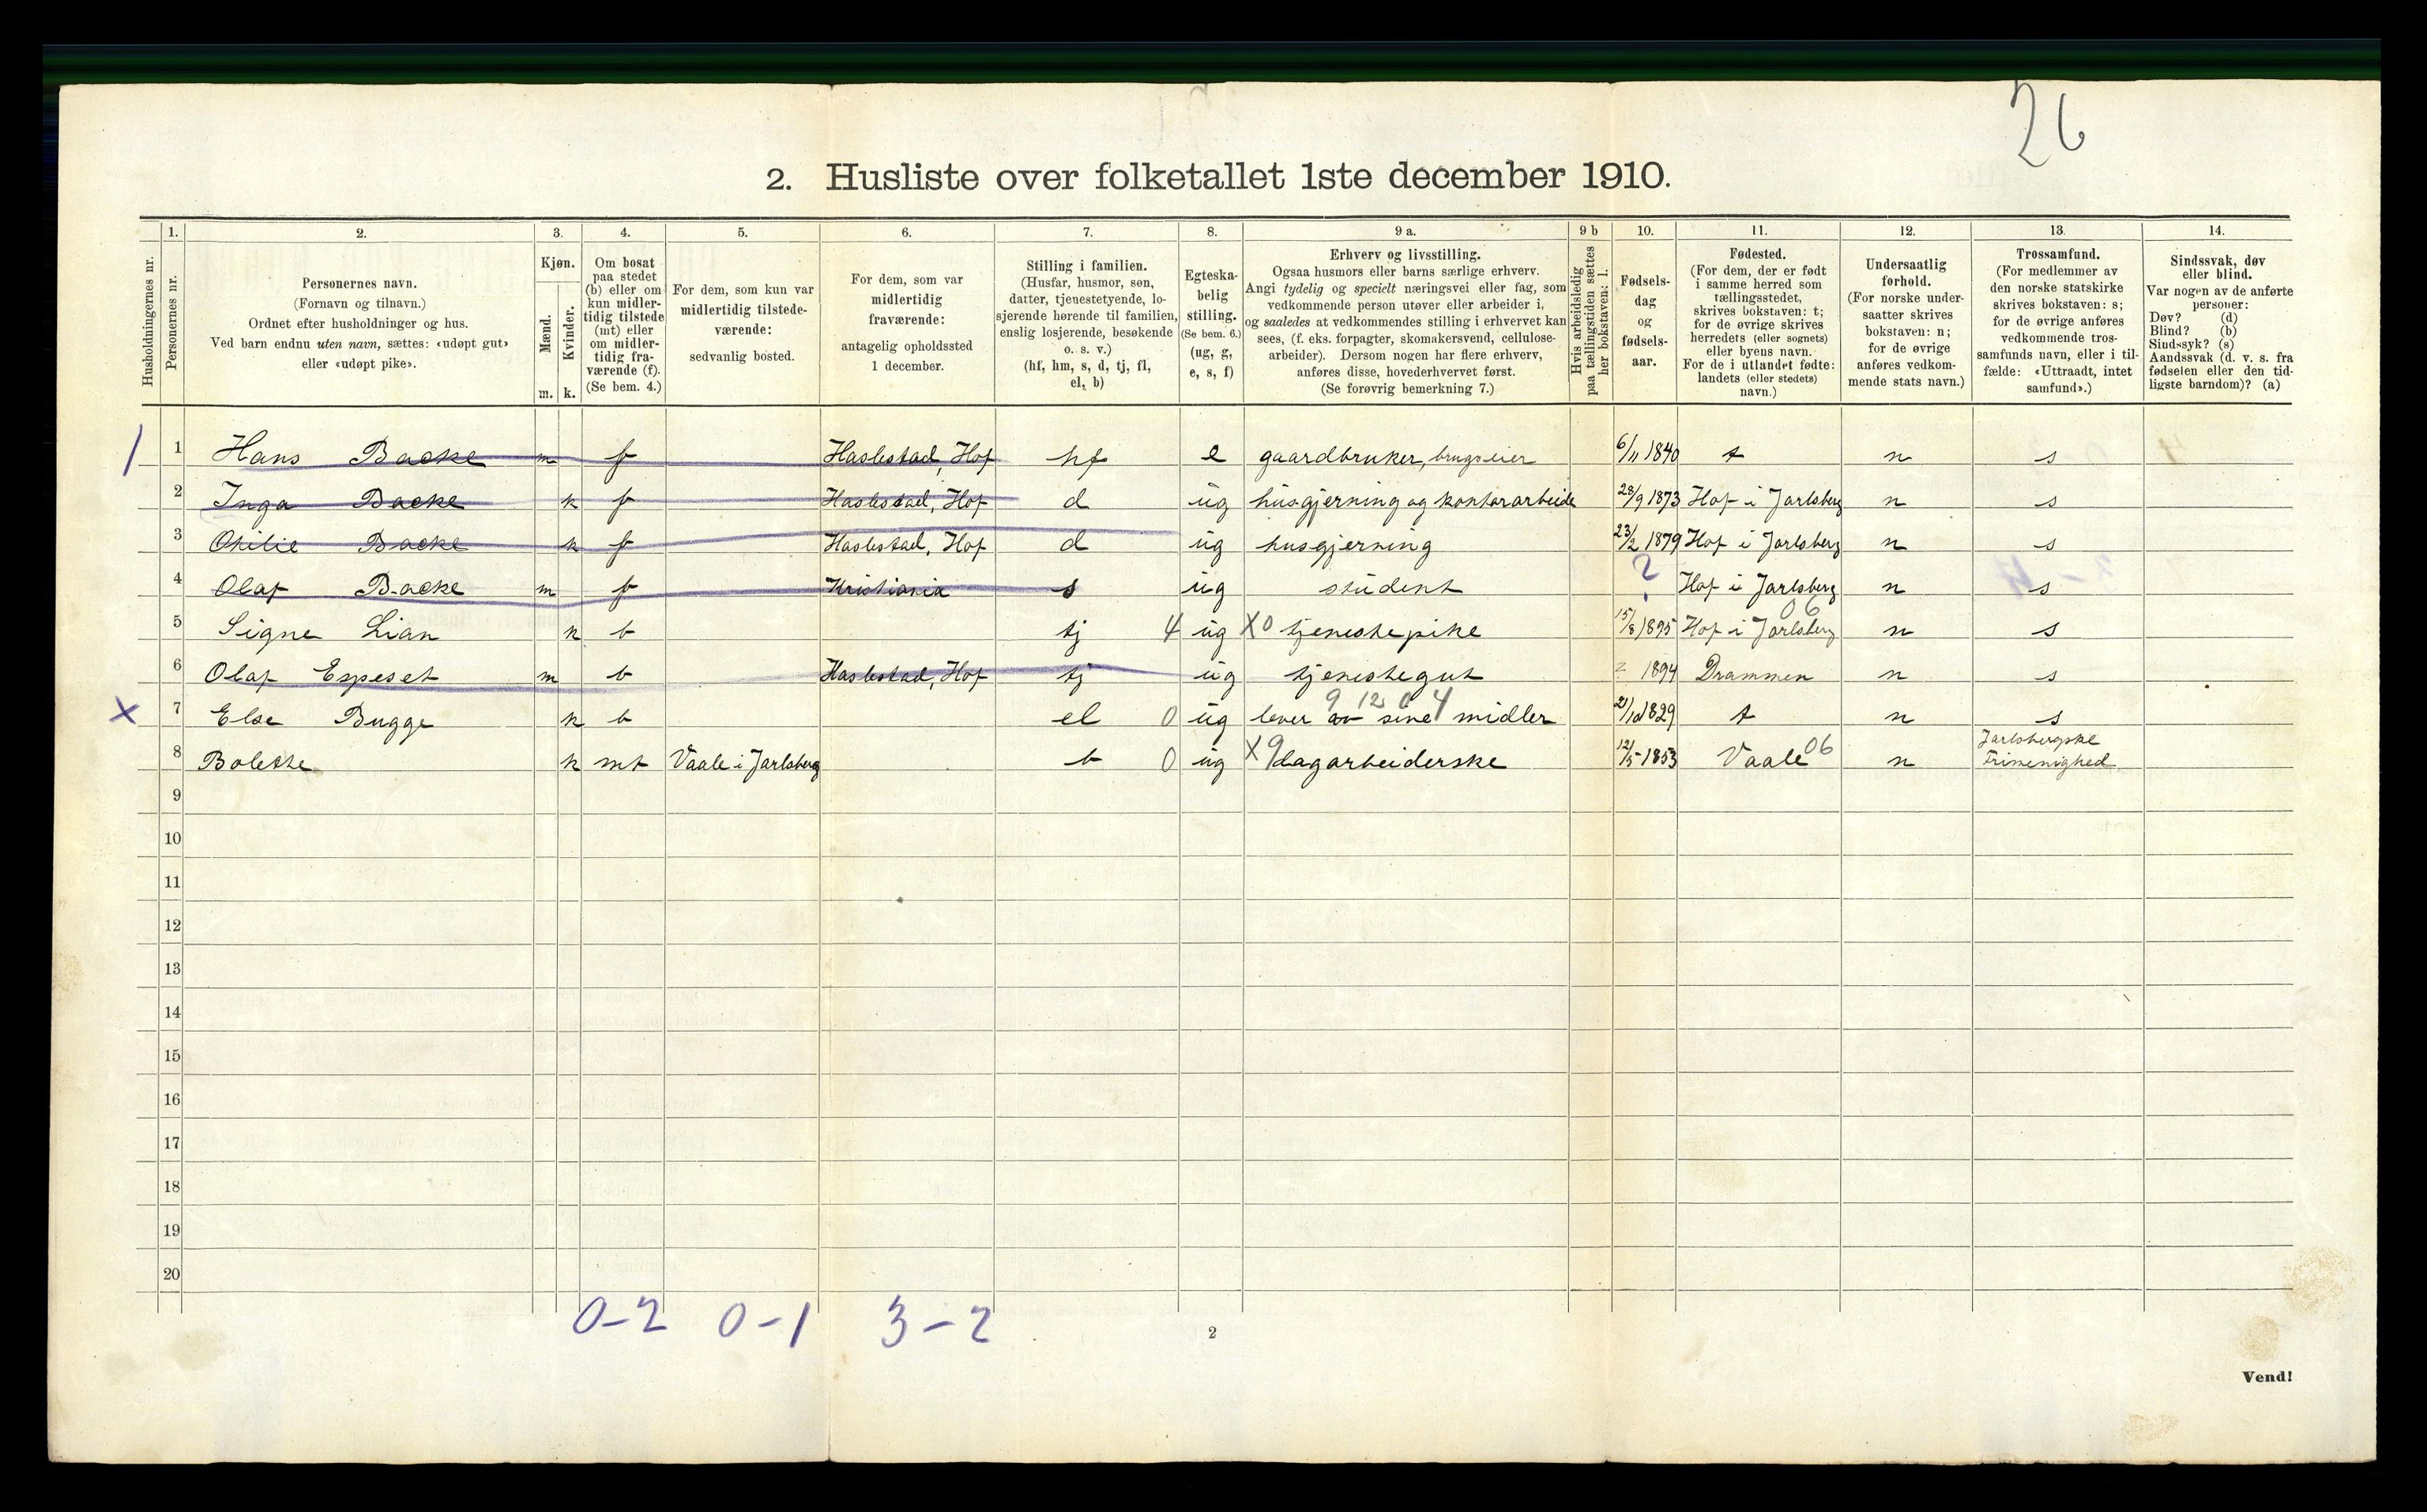 26
2. Husliste over folketallet 1ste december 1910.
Husholdningernes nr.
1. Personernes nr.
2. Personernes navn.
(Fornavn og tilnavn.)
Ordnet efter husholdninger og hus.
Ved barn endnu uten navn, sættes: «udøpt gut»
eller «udøpt pike».
3. Kjøn.
Mænd. m.
Kvinder. k.
4. Om bosat
paa stedet
(b) eller om
kun midler-
tidig tilstede
(mt) eller
om midler-
tidig fra-
værende (f).
(Se bem. 4.)
5. For dem, som kun var
midlertidig tilstede-
værende:
sedvanlig bosted.
6. For dem, som var
midlertidig
fraværende:
antagelig opholdssted
1 december.
7. Stilling i familien.
(Husfar, husmor, søn,
datter, tjenestetyende, lo-
sjerende hørende til familien,
enslig losjerende, besøkende
o. s. v.)
(hf, hm, s, d, tj, fl,
el, b)
8. Egteska-
belig
stilling.
(Se bem. 6.)
(ug, g,
e, s, f)
9 a. Erhverv og livsstilling.
Ogsaa husmors eller barns særlige erhverv.
Angi tydelig og specielt næringsvei eller fag, som
vedkommende person utøver eller arbeider i,
og saaledes at vedkommendes stilling i erhvervet kan
sees, (f. eks. forpagter, skomakersvend, cellulose-
arbeider). Dersom nogen har flere erhverv,
anføres disse, hovederhvervet først.
(Se forøvrig bemerkning 7.)
9 b Hvis arbeidsledig
paa tællingstiden sættes
her bokstaven: l.
10. Fødsels-
dag
og
fødsels-
aar.
11. Fødested.
(For dem, der er født
i samme herred som
tællingsstedet,
skrives bokstaven: t;
for de øvrige skrives
herredets (eller sognets)
eller byens navn.
For de i utlandet fødte:
landets (eller stedets)
navn.)
12. Undersaatlig
forhold.
(For norske under-
saatter skrives
bokstaven: n;
for de øvrige
anføres vedkom-
mende stats navn.)
13. Trossamfund.
(For medlemmer av
den norske statskirke
skrives bokstaven: s;
for de øvrige anføres
vedkommende tros-
samfunds navn, eller i til-
fælde: «Uttraadt, intet
samfund».)
14. Sindssvak, døv
eller blind.
Var nogen av de anførte
personer:
Døv? (d)
Blind? (b)
Sindssyk? (s)
Aandssvak (d. v. s. fra
fødselen eller den tid-
ligste barndom)? (a)
1 Hans Backe m f Haslestad, Hof hf e gaardbruker, brugseier 6/11 1840 t n s
2 Inga Backe k f Haslestad, Hof d ug husgjerning og kontorarbeide 28/9 1873 Hof i Jarlsberg n s
3 Othilie Backe k f Haslestad, Hof d ug husgjerning 23/2 1879 Hof i Jarlsberg n s
4 Olaf Backe m f Kristiania s ug student ? Hof i Jarlsberg n s
5 Signe Lian k b tj 4 ug X0 tjenestepike 15/8 1895 Hof i Jarlsberg 06 n s
6 Olaf Espeset m b Haslestad, Hof tj ug tjenestegut ? 1894 Drammen n s
7 Else Bugge k b el 0 ug lever av sine midler 1829 t n s
8 Bolette k mt Vaale i Jarlsberg b 0 ug X9 dagarbeiderske 12/5 1853 Vaale 06 n Jarlsbergske Frimenighed
9
10
11
12
13
14
15
16
17
18
19
20
0-2 0-1 3-2
2
Vend!